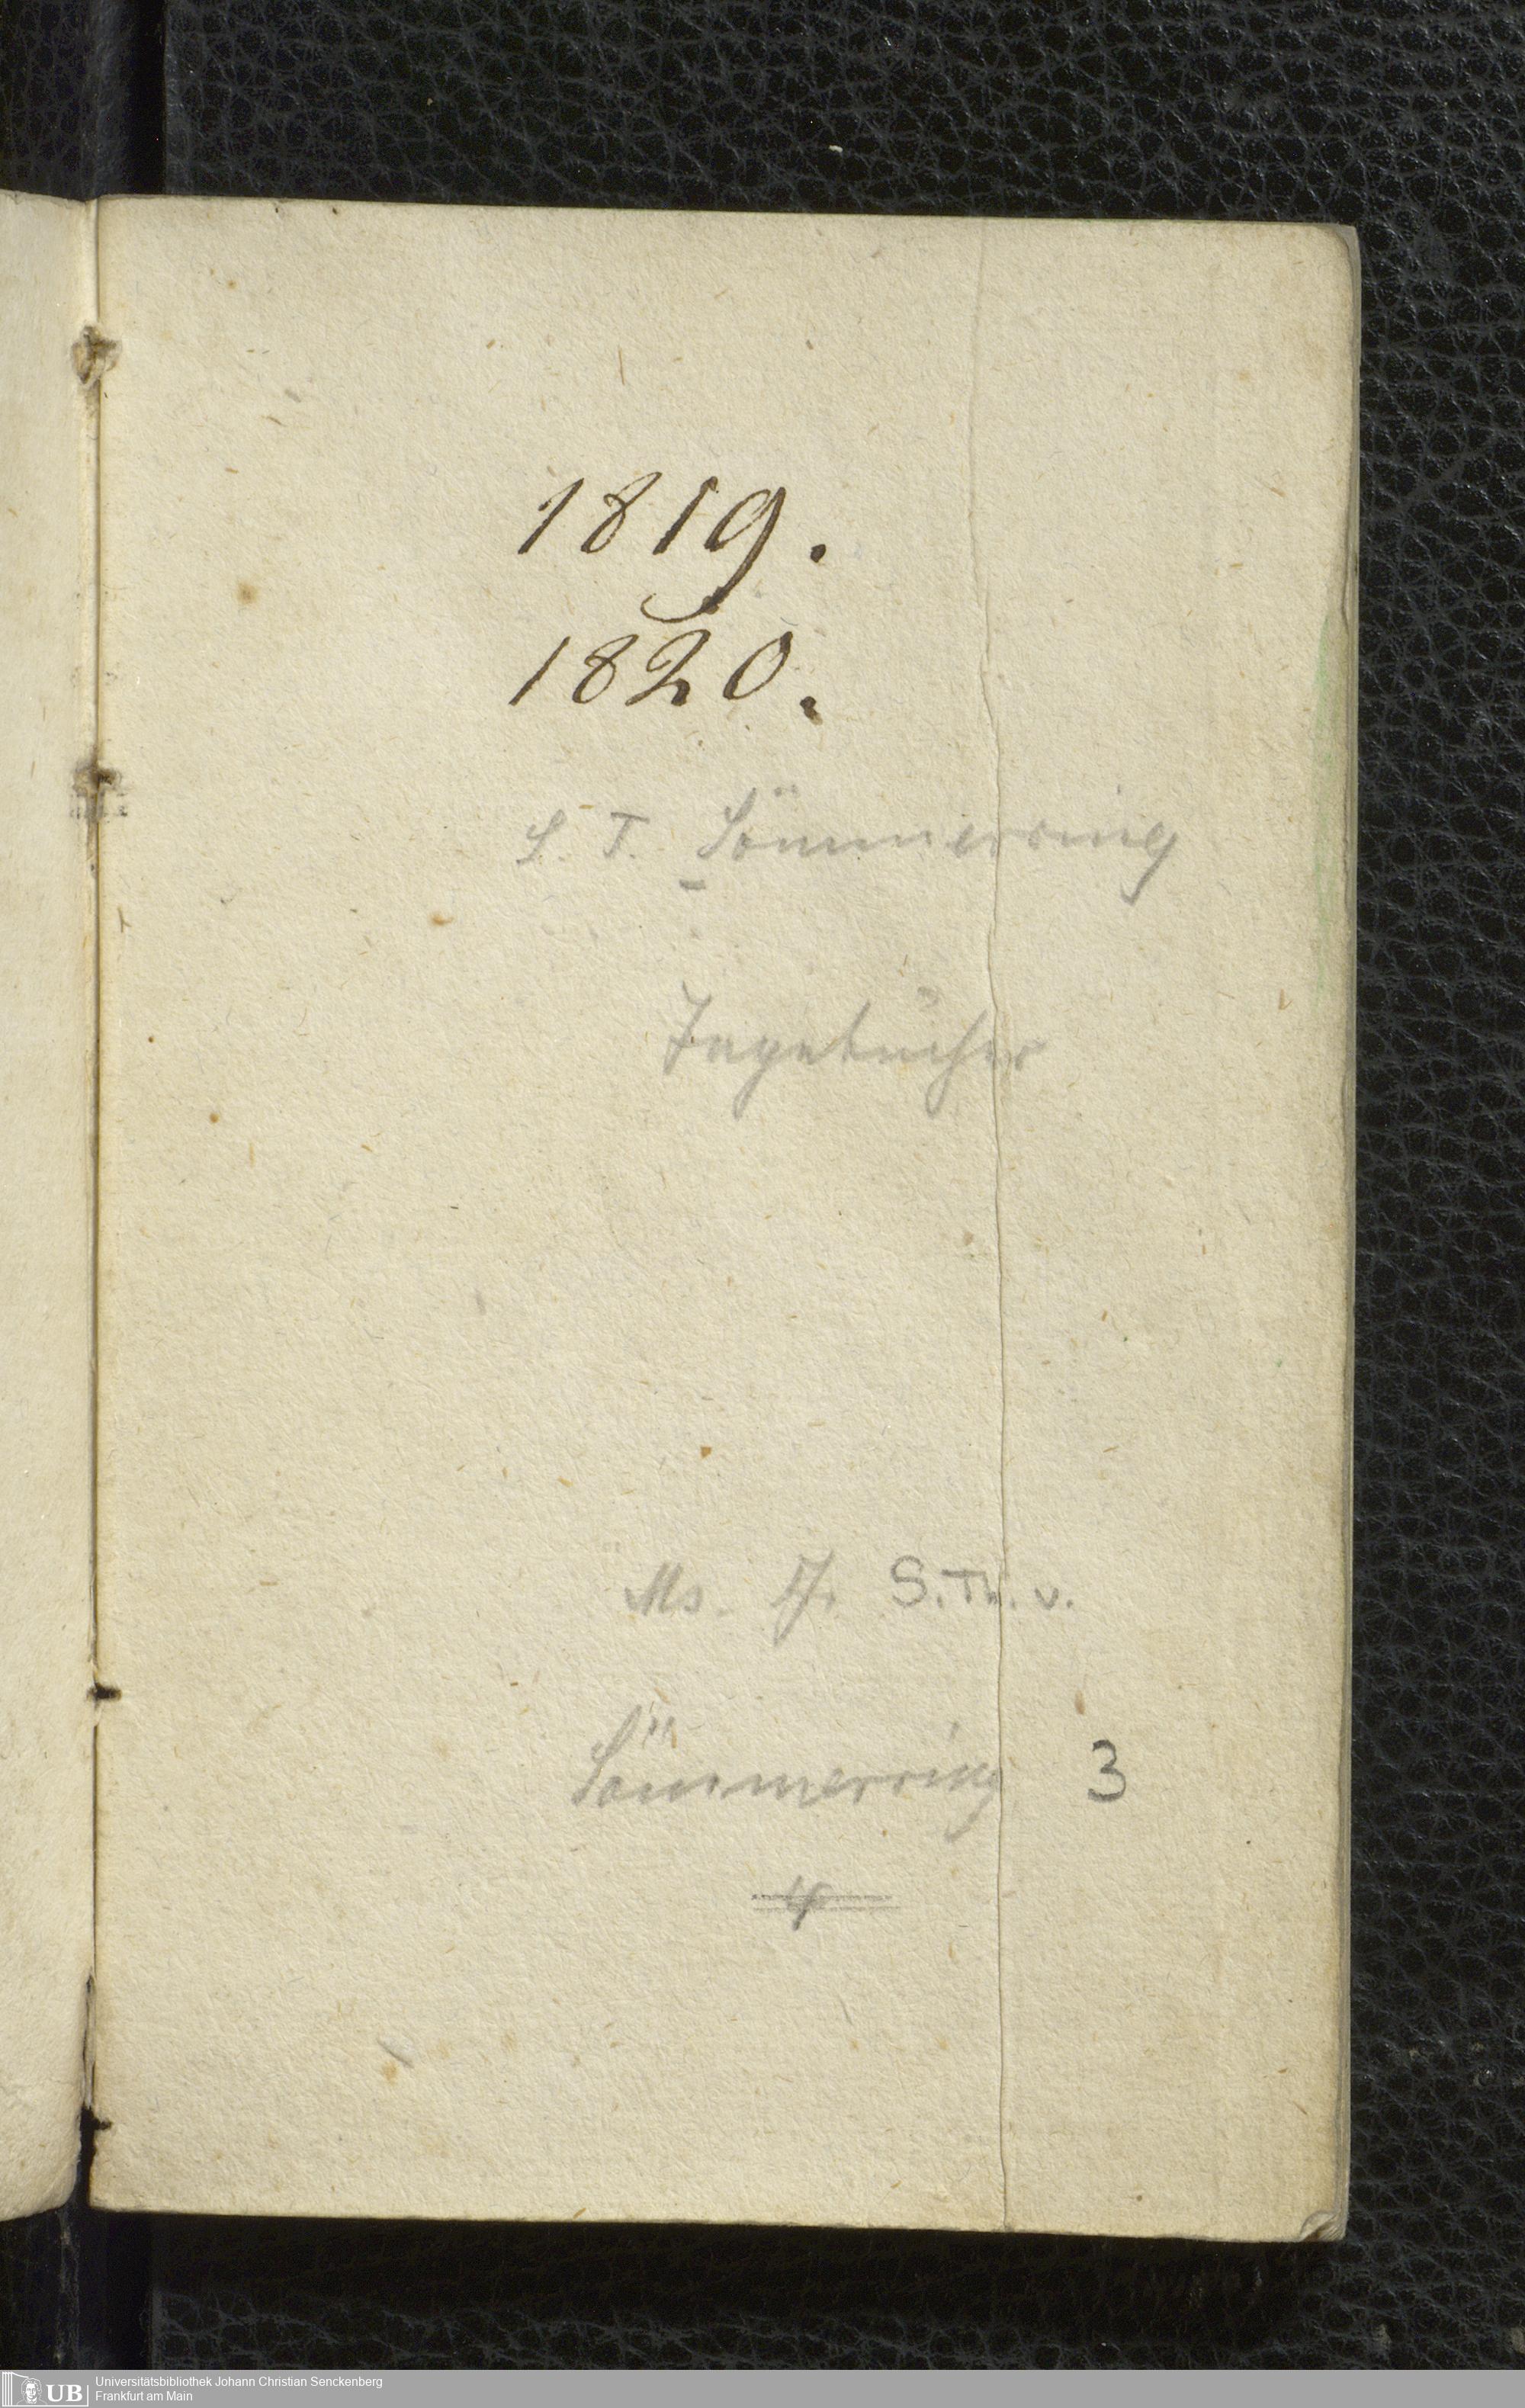 1819.
1820.
S. T. Sömmerring
Tagebücher
Ms. Ff. S.Th.v.
Sömmerring 3
4
UB Universitätsbibliothek Johann Christian Senckenberg
Frankfurt am Main